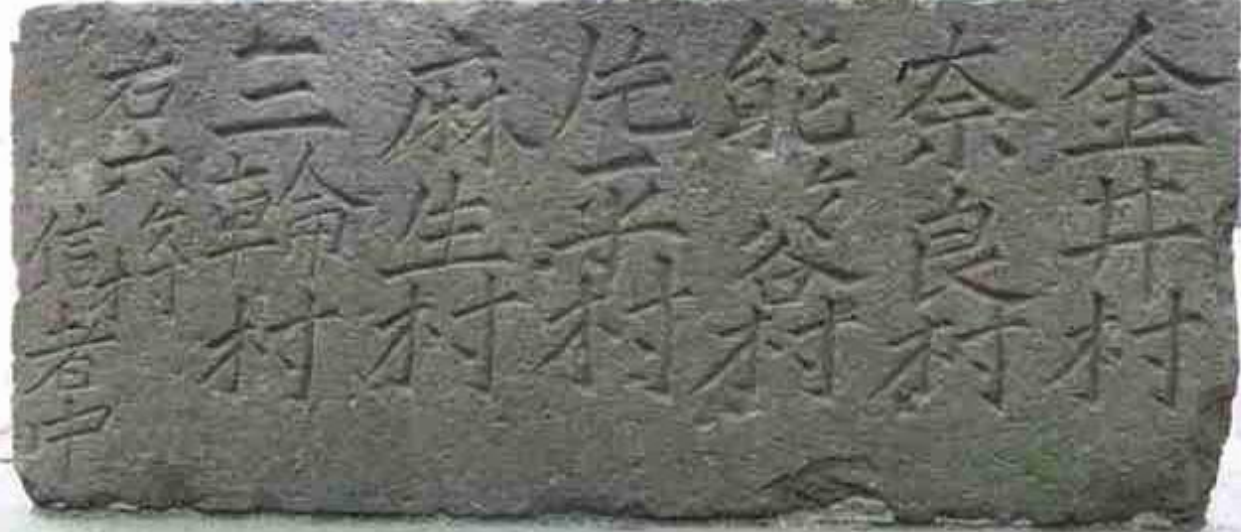 金井村
奈良村
能ヶ谷村
片平村
麻生村
三輪村
右六ヶ村
信者中